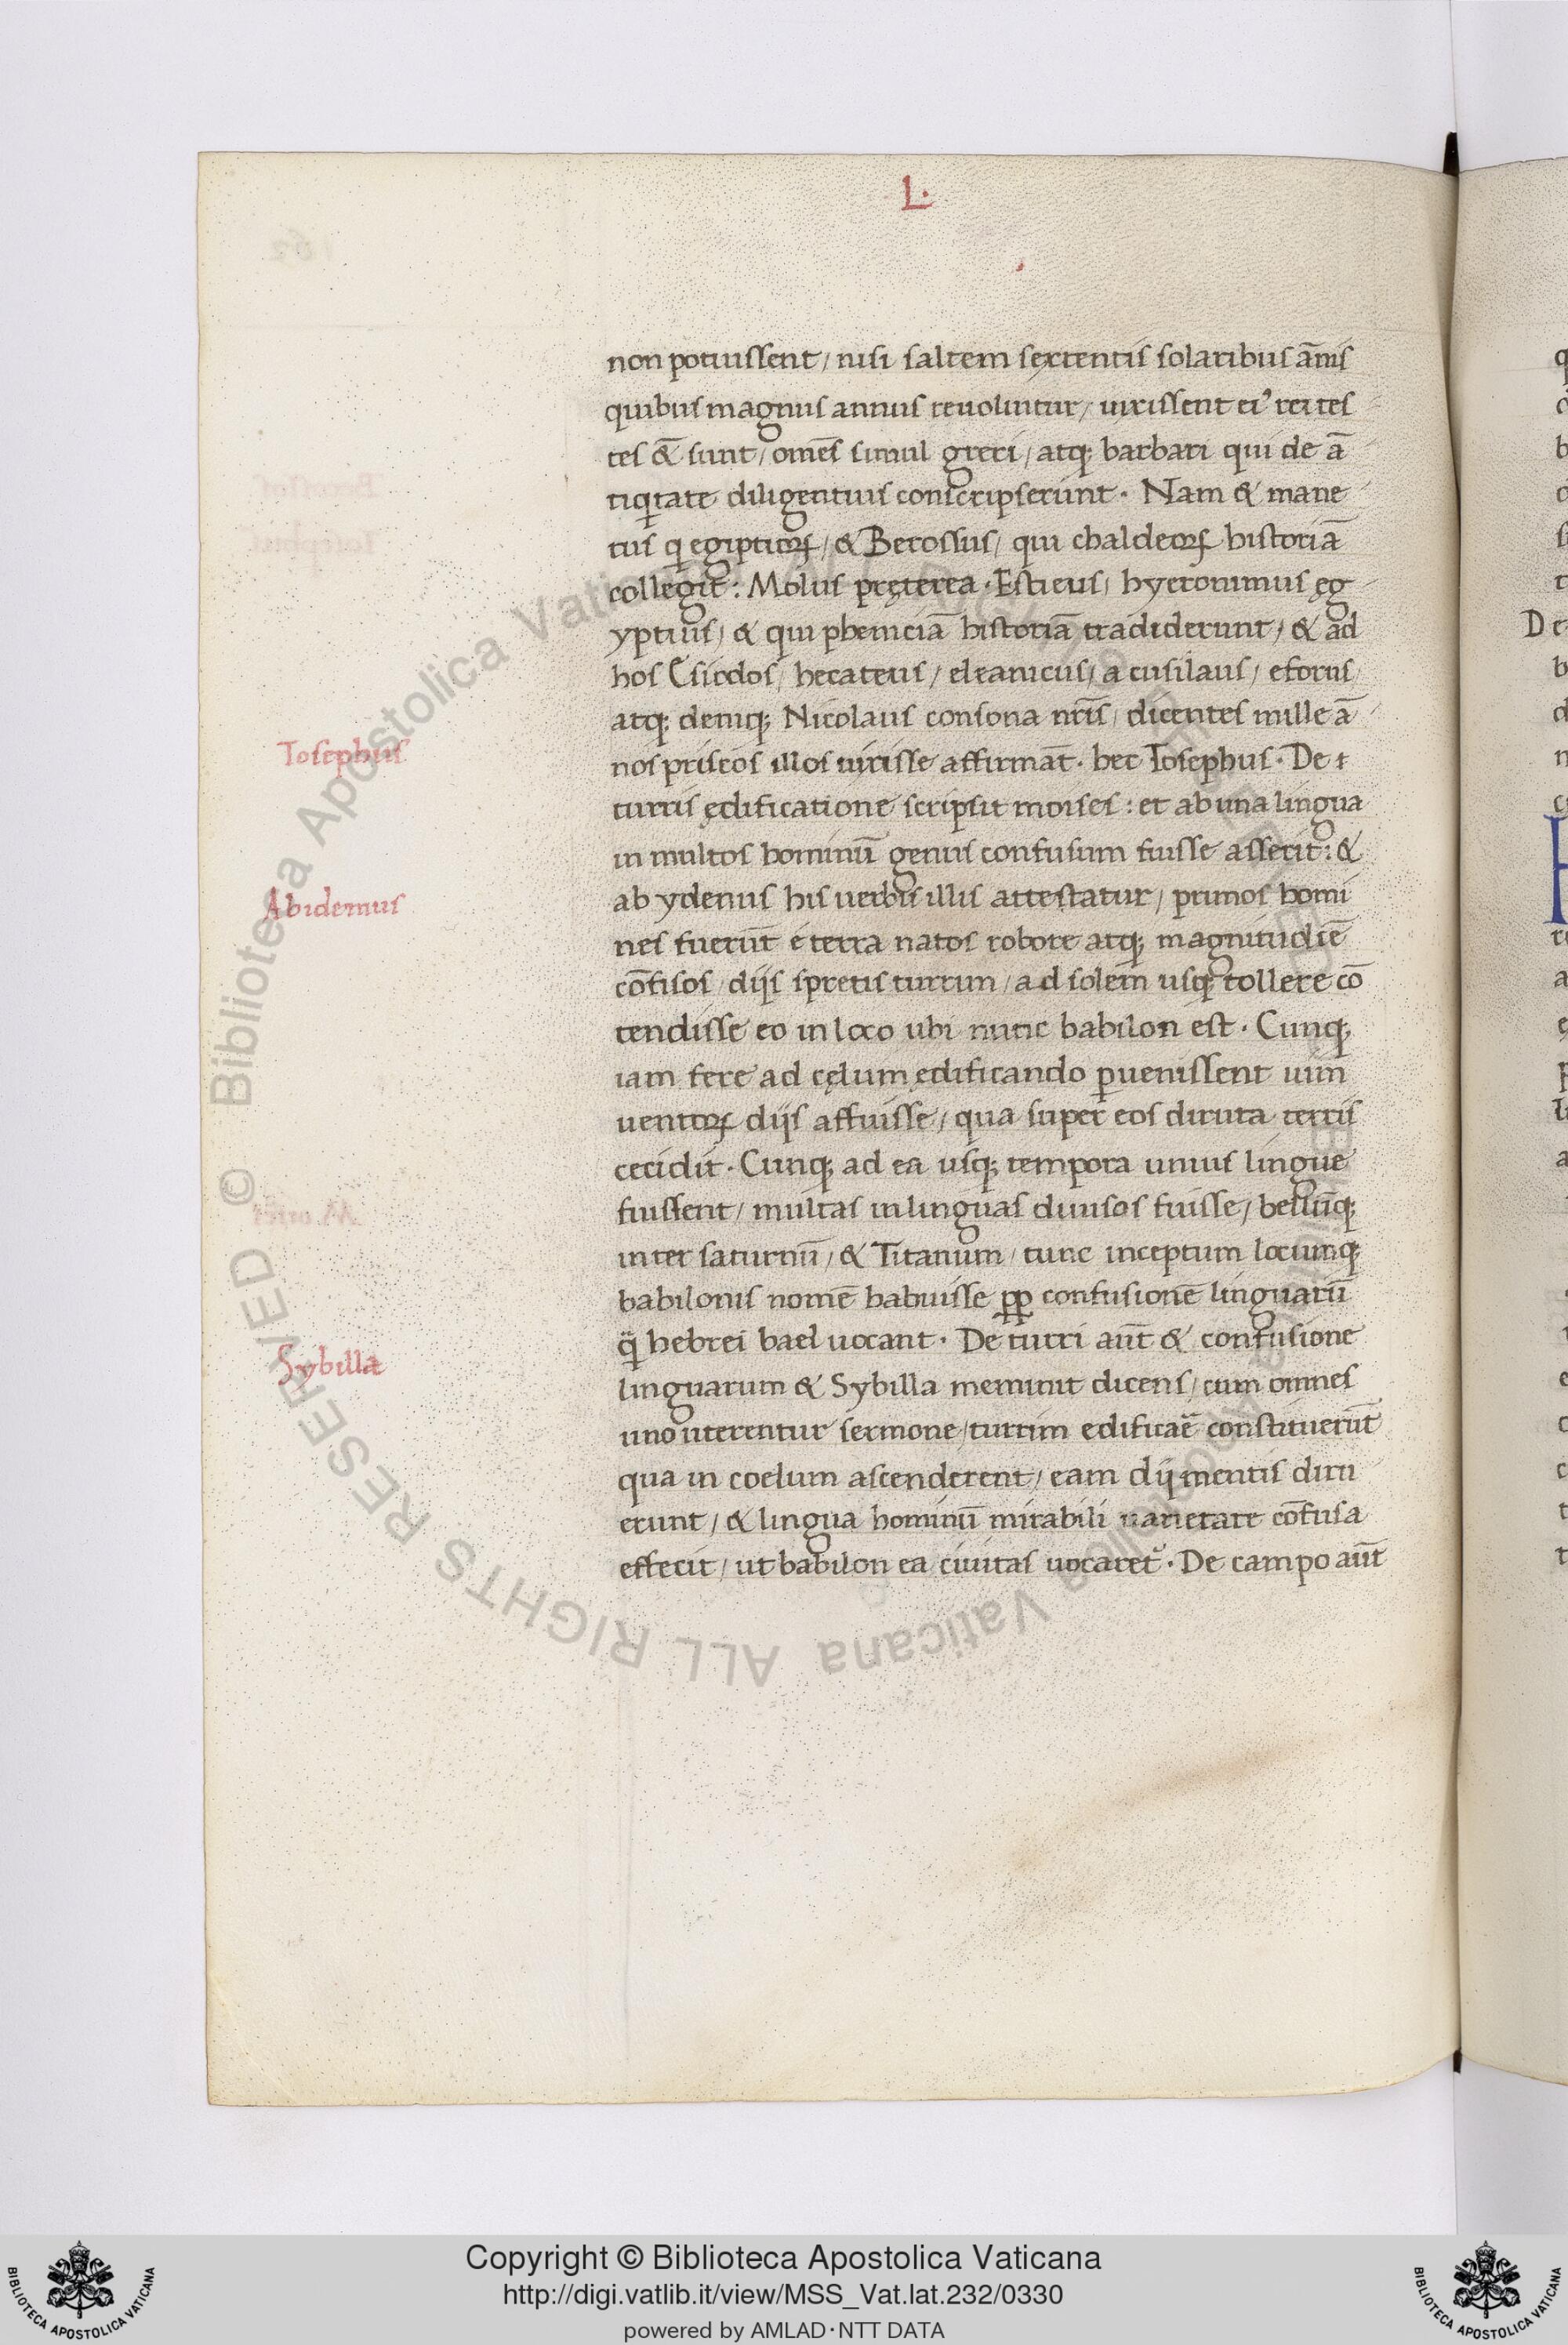 L.
non potuissent / nisi saltem sexcentis solaribus ãnis
quibus magnus annus reuoluitur / uixissent ei᾽ rei tes
tes &̃ sunt / omẽs simul greci / atq; barbari qui de ã
tiqitate diligentius conscripserunt · Nam & mane
tus q egiptioꝝ / & Berossus / qui chaldeoꝝ historiã
collegit : Molus pręterea · Estieus / hyeronimus ęg
yptius / & qui pheniciã historiã tradiderunt / & ad
hos Esiodos / hecateus / eleanicus / a cusilaus / eforus /
atq; deniq; Nicolaus consona nr̃is / dicentes mille ã
nos priscos illos uixisse affirmãt · hec Iosephus · De t
Iosephus
turris ędificatione scripsit moises : et ab una lingua
in multos hominũ genus confusum fuisse asserit : &
ab ydenus his uerbis illis attestatur / primos homi
Abidemus
nes fuerũt e terra natos robore atq; magnitudĩe
cõfisos / dijs spretis turrim / ad solem usq; tollere cõ
tendisse eo in loco ubi nunc babilon est · Cunq;
iam fere ad cęlum edificando ꝑuenissent uim
uentoꝝ dijs affuisse / qua super eos diruta terris
cecidit · Cunq; ad ea usq; tempora unius lingue
fuissent / multas in linguas diuisos fuisse / bellũq;
inter saturnũ / & Titanum / tunc inceptum locumq;
babilonis nomẽ habuisse ꝓꝑ confusionẽ linguarũ
q̃ hebrei bael uocant · De turri aũt & confusione
linguarum & Sybilla meminit dicens / cum omnes
Sybilla
uno uterentur sermone / turrim edificaẽ constituerũt
qua in coelum ascenderent / eam dij mentis diru
erunt / & lingua hominũ mirabili uarietate cõfusa
effecit / ut babilon ea ciuitas uocaret᷑ · De campo aũt
Copyright © Biblioteca Apostolica Vaticana
http://digi.vatlib.it/view/MSS_Vat.lat.232/0330
powered by AMLAD·NTT DATA
BIBLIOTECA APOSTOLICA VATICANA
BIBLIOTECA APOSTOLICA VATICANA
© Biblioteca Apostolica Vaticana ALL RIGHTS RESERVED